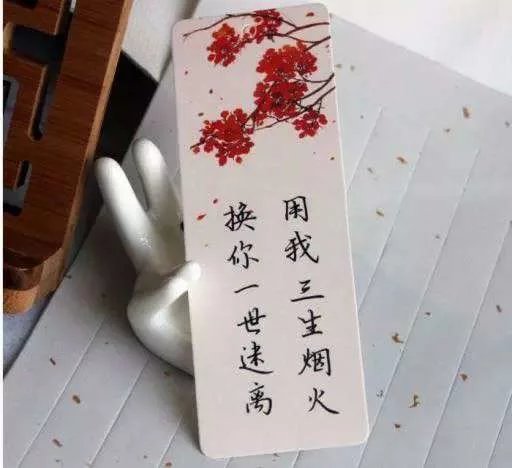 用我三生烟火
换你一世迷离